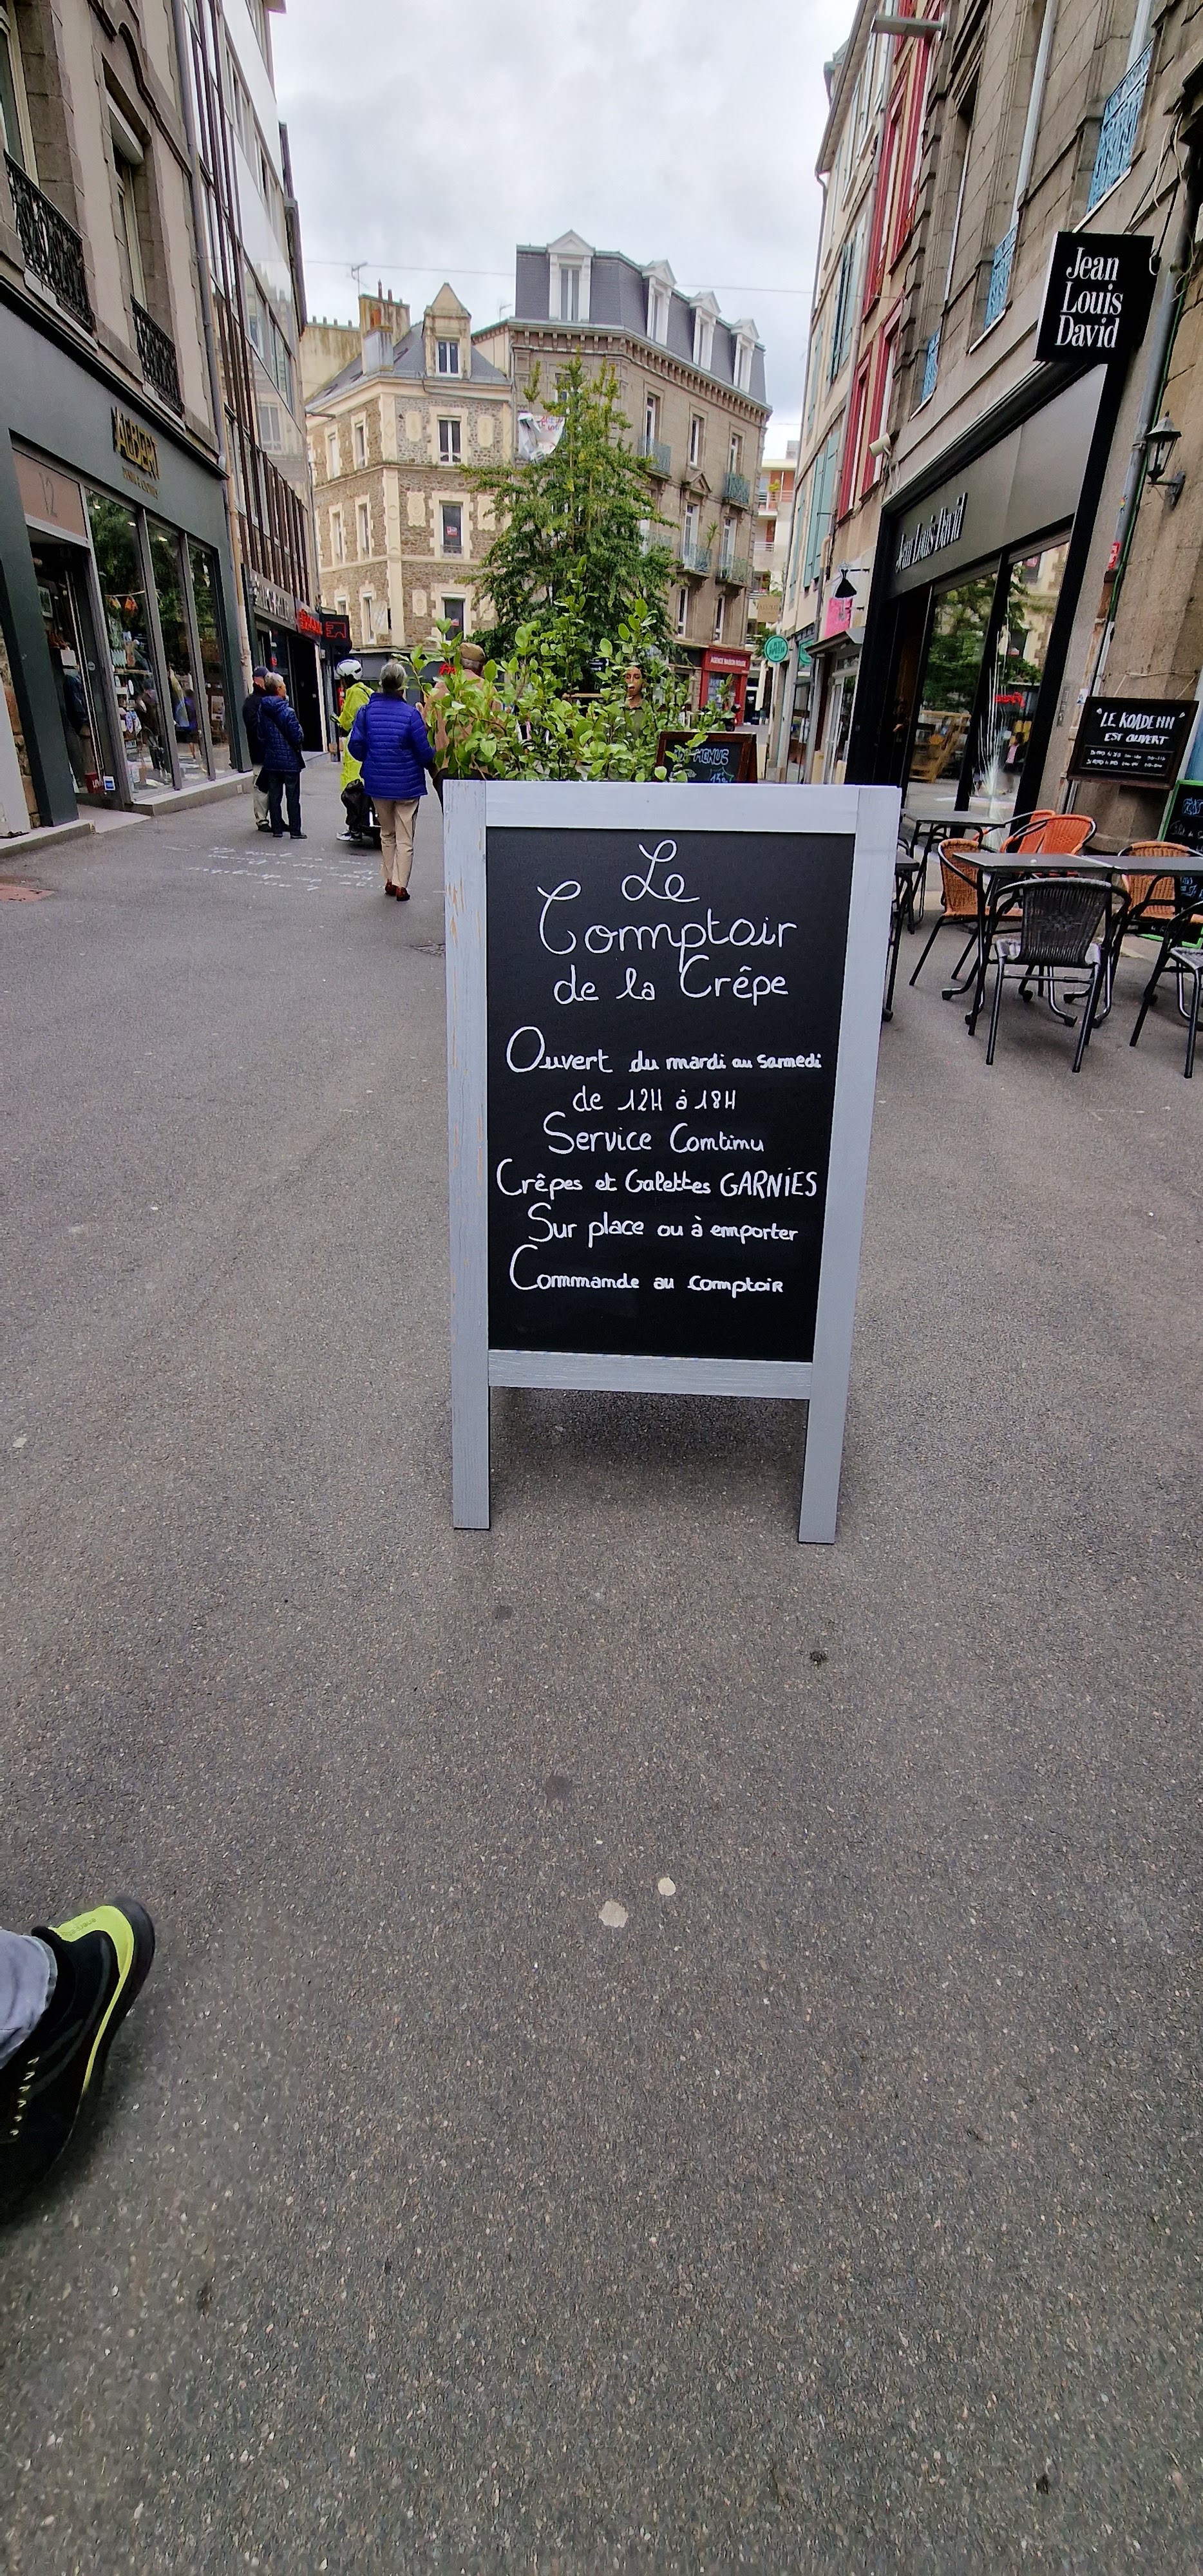 Jean
Louis
David
Jean Louis David
"LE KOADENN"
EST OUVERT
Le
Comptoir
de la Crêpe
Ouvert du mardi au samedi
de 12H à 18H
Service Continu
Crêpes et Galettes GARNIES
Sur place ou à emporter
Commande au comptoir